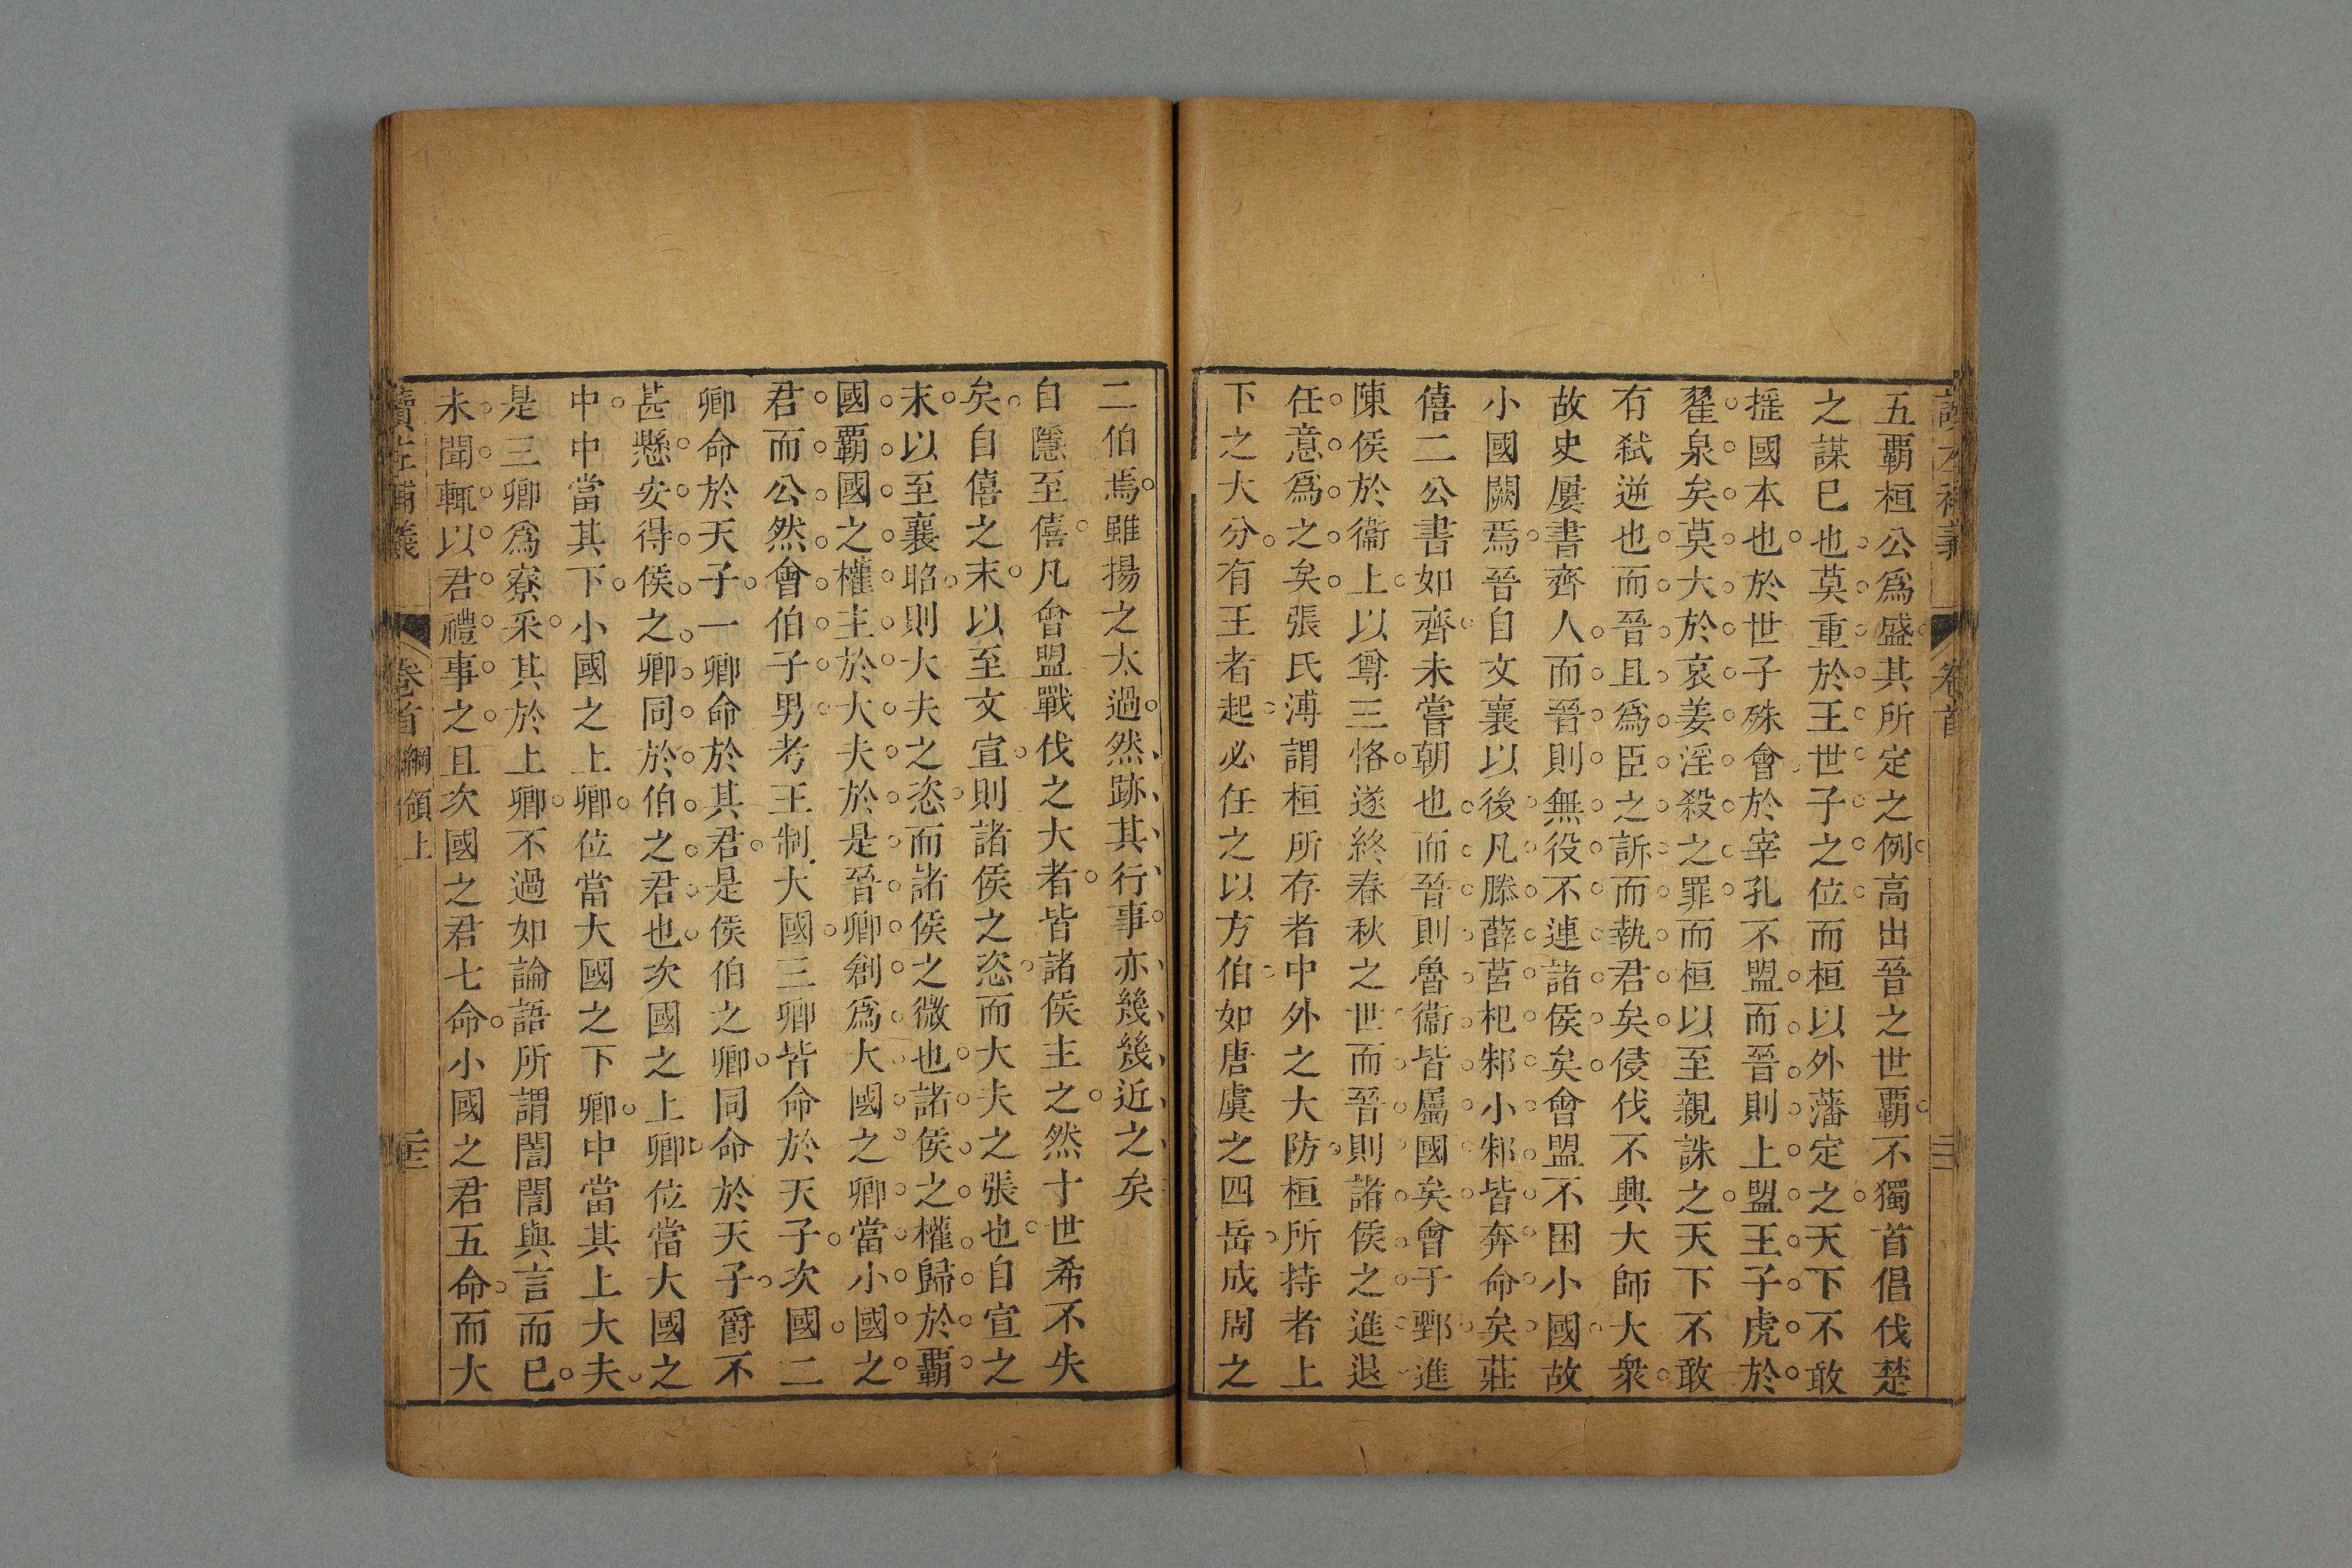 五覇桓公爲盛其所定之例高出晉之世覇不獨首倡伐楚
之謀巳也莫重於王世子之位而桓以外藩定之天下不敢
搖國本也於世子殊會於宰孔不盟而晉則上盟王子虎於
翟泉矣莫大於哀姜淫殺之罪而桓以至親誅之天下不敢
有弑逆也而晉且爲臣之訴而執君矣侵伐不興大師大衆
故史屢書齊人而晉則無役不連諸侯矣會盟不困小國故
小國闕焉晉自文襄以後凡滕薛莒杞邾小邾皆奔命矣莊
僖二公書如齊未嘗朝也而晉則魯衞皆屬國矣會于鄄進
陳侯於衞上以尊三恪遂終春秋之世而晉則諸侯之進退
任意爲之矣張氏溥謂桓所存者中外之大防桓所持者上
下之大分有王者起必任之以方伯如唐虞之四岳成周之
二伯焉雖揚之太過然跡其行事亦幾幾近之矣
自隱至僖凡會盟戰伐之大者皆諸侯主之然十世希不失
矣自僖之末以至文宣則諸侯之恣而大夫之張也自宣之
末以至襄昭則大夫之恣而諸侯之微也諸侯之權歸於覇
國覇國之權主於大夫於是晉卿創爲大國之卿當小國之
君而公然會伯子男考王制大國三卿皆命於天子次國二
卿命於天子一卿命於其君是侯伯之卿同命於天子爵不
甚懸安得侯之卿同於伯之君也次國之上卿位當大國之
中中當其下小國之上卿位當大國之下卿中當其上大夫
是三卿爲寮采其於上卿不過如論語所謂誾誾與言而巳
未聞輒以君禮事之且次國之君七命小國之君五命而大
讀左補義 卷首 綱領上